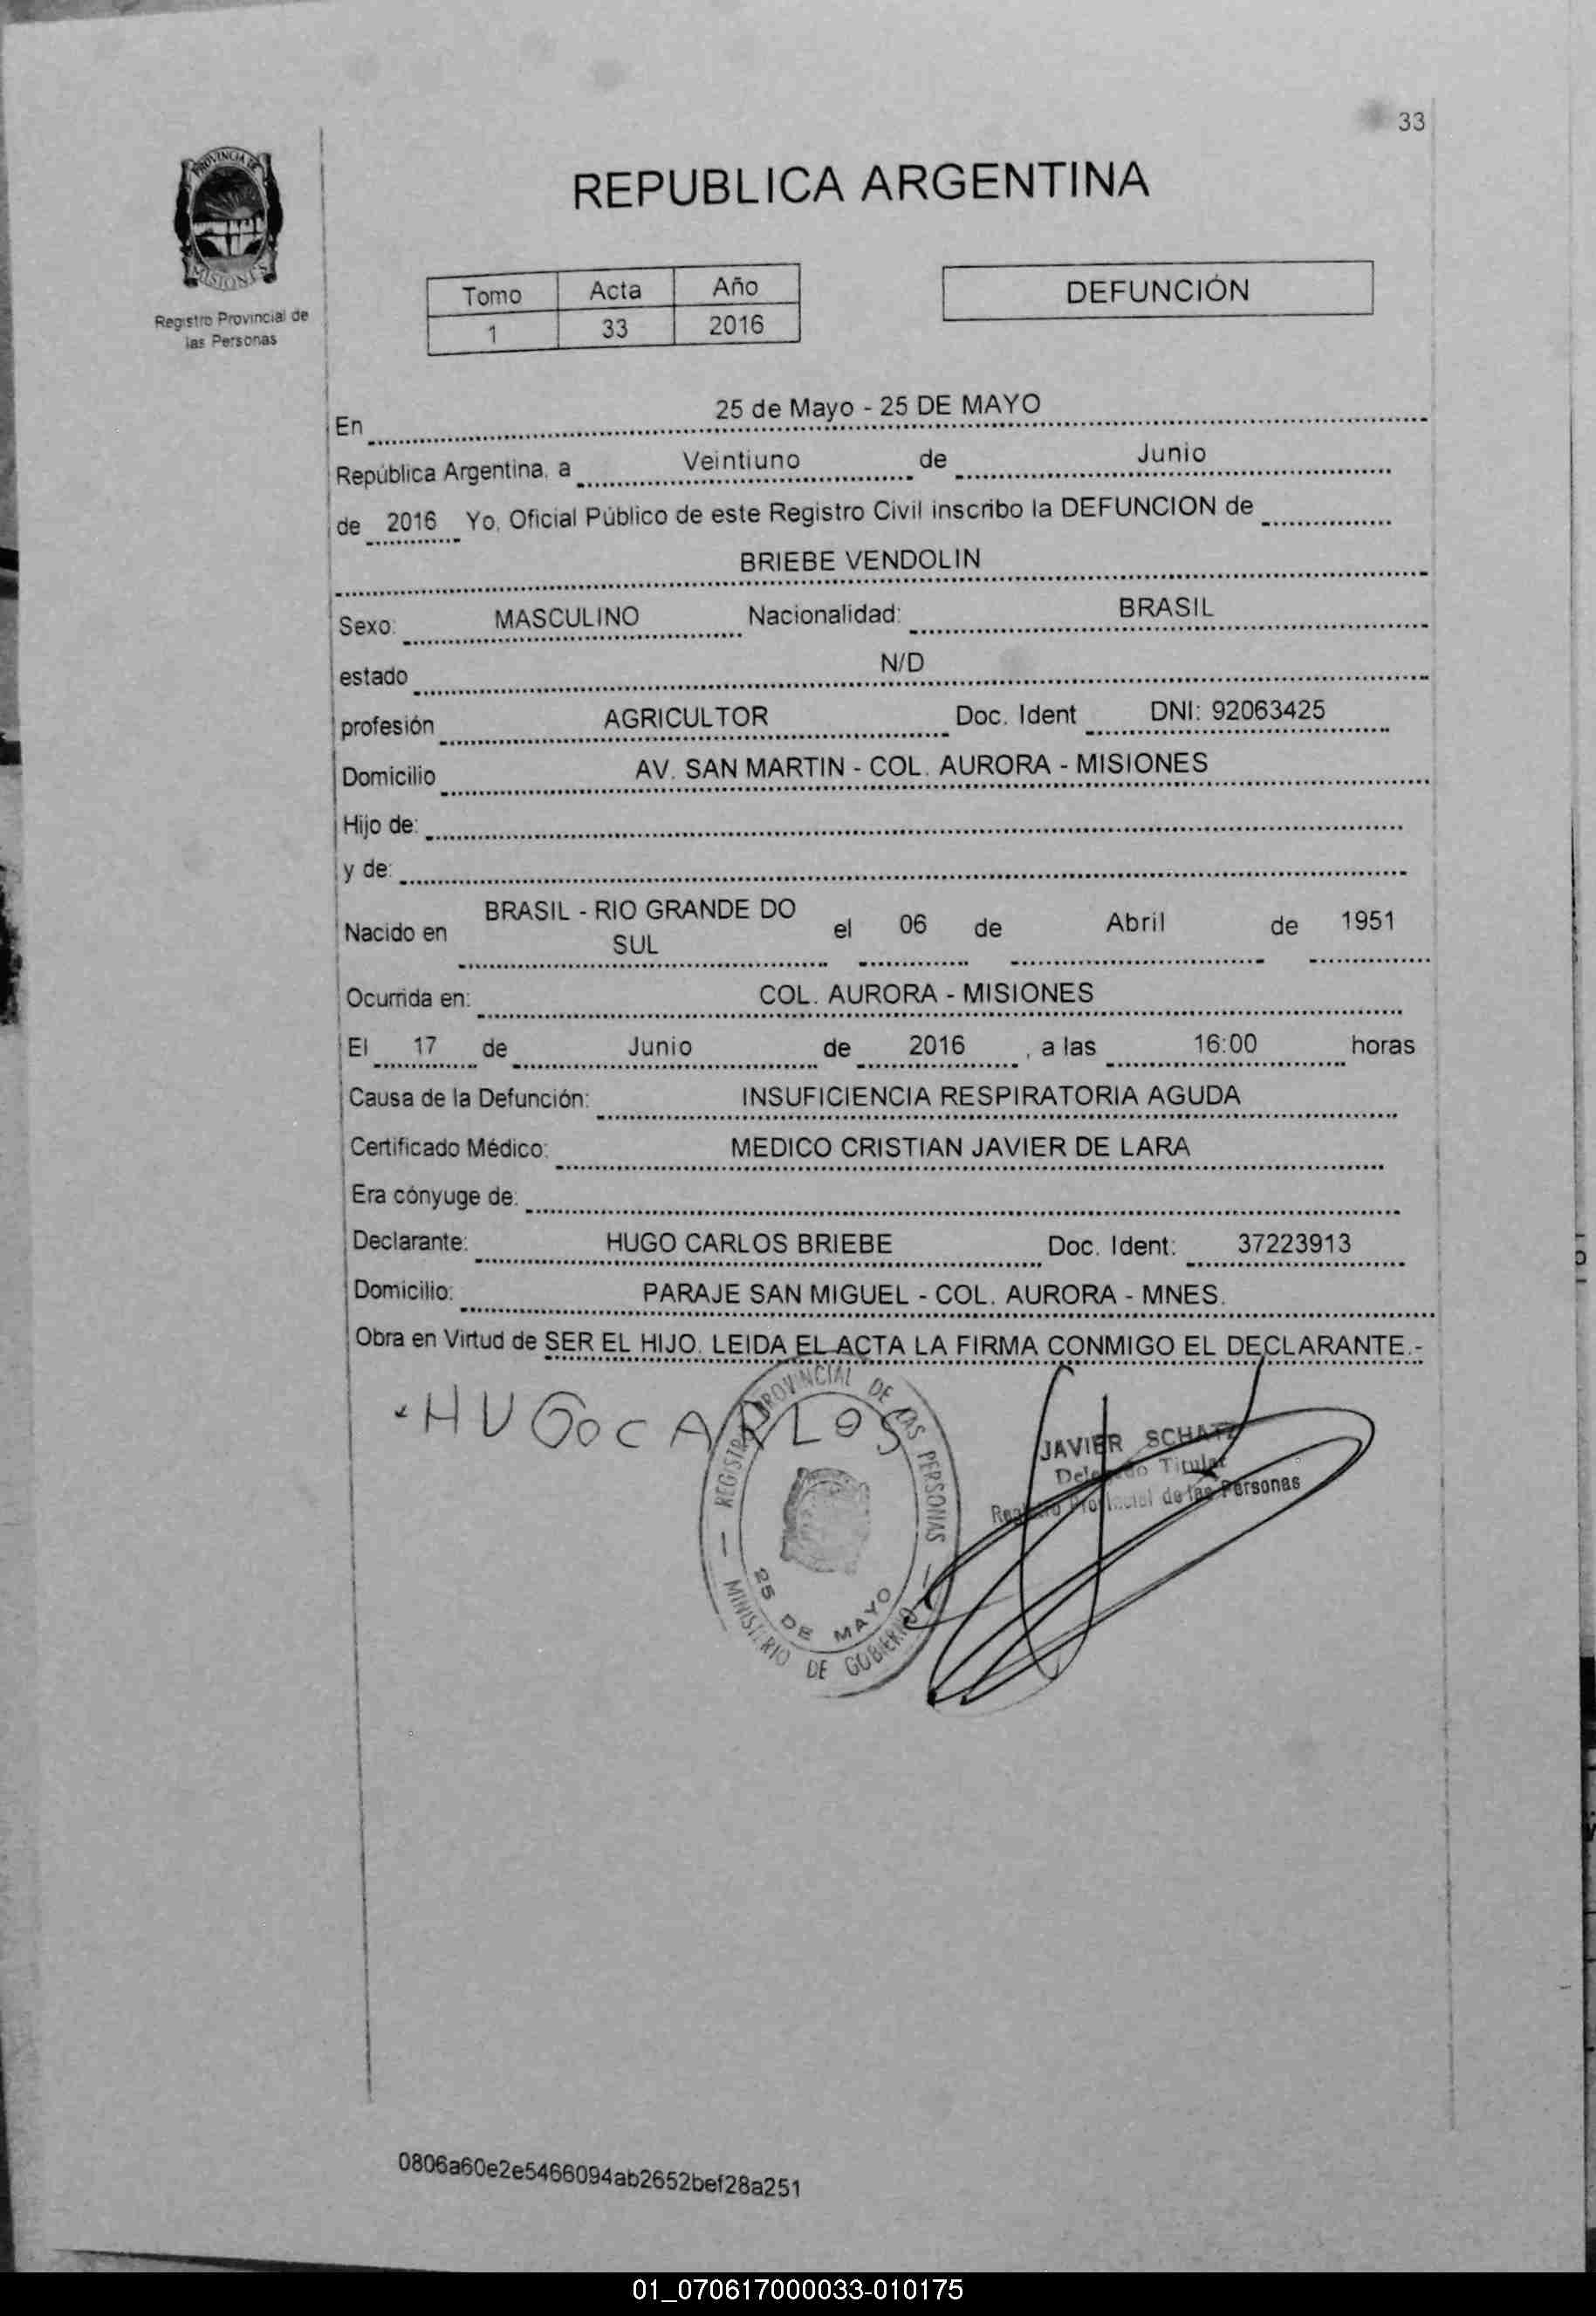 33
PROVINCIA DE
MISIONES
Registro Provincial de
las Personas
REPUBLICA ARGENTINA
Tomo Acta Año
1 33 2016
DEFUNCIÓN
En 25 de Mayo - 25 DE MAYO
República Argentina, a Veintiuno de Junio
de 2016 Yo, Oficial Público de este Registro Civil inscribo la DEFUNCION de
BRIEBE VENDOLIN
Sexo: MASCULINO Nacionalidad: BRASIL
estado N/D
profesión AGRICULTOR Doc. Ident DNI: 92063425
Domicilio AV. SAN MARTIN - COL. AURORA - MISIONES
Hijo de:
y de:
Nacido en BRASIL - RIO GRANDE DO SUL el 06 de Abril de 1951
Ocurrida en: COL. AURORA - MISIONES
El 17 de Junio de 2016 , a las 16:00 horas
Causa de la Defunción: INSUFICIENCIA RESPIRATORIA AGUDA
Certificado Médico: MEDICO CRISTIAN JAVIER DE LARA
Era cónyuge de:
Declarante: HUGO CARLOS BRIEBE Doc. Ident: 37223913
Domicilio: PARAJE SAN MIGUEL - COL. AURORA - MNES.
Obra en Virtud de SER EL HIJO. LEIDA EL ACTA LA FIRMA CONMIGO EL DECLARANTE.-
HUGO CARLOS
REGISTRO PROVINCIAL DE LAS PERSONAS
25 DE MAYO
MINISTERIO DE GOBIERNO
JAVIER SCHATZ
Delegado Titular
Registro Provincial de las Personas
0806a60e2e5466094ab2652bef28a251
01_070617000033-010175